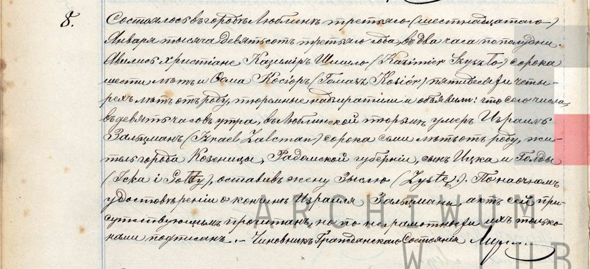 8.
Состоялось въ городѣ Люблинѣ третьяго (шестнадцатаго)
Января тысяча Девятьсотъ третьяго года, въ два часа по полудни.
Явились христіане Казиміръ Шышло (Kazimierz Szyszło) сорока
шести лѣтъ и Ѳома Косіоръ (Tomasz Kosior) пятидесяти четы-
рехъ лѣтъ отъ роду, тюремные надзиратели и объявили: что сего числа
въ девять часовъ утра, въ Люблинской тюрьмѣ умеръ Израиль
Зальцманъ (Izrael Zalcman) сорока семи лѣтъ отъ роду, жи-
тель города Козеницы, Радомской губерніи, сынъ Ицка и Голды
(Icka i Goldy), оставивъ жену Зыслю (Zyslę). По наочномъ
удостовѣреніи о кончинѣ Израиля Зальцмана, актъ сей при-
сутствующимъ прочитанъ, но по неграмотности ихъ только
нами подписанъ. Чиновникъ Гражданскаго Состоянія
ARCHIWUM
W